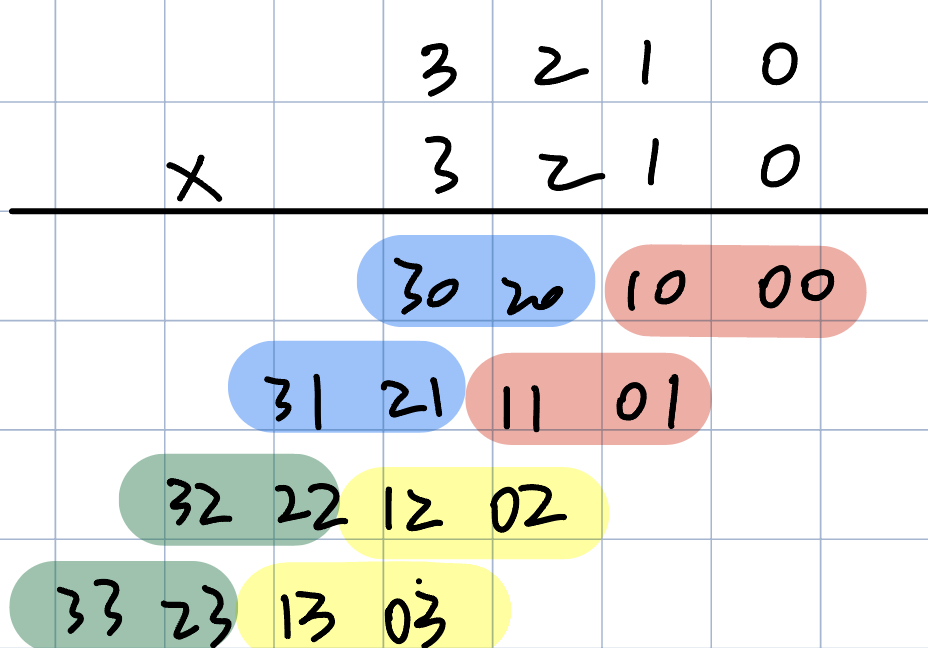 3 2 1 0
× 3 2 1 0
30 20 10 00
31 21 11 01
32 22 12 02
33 23 13 03